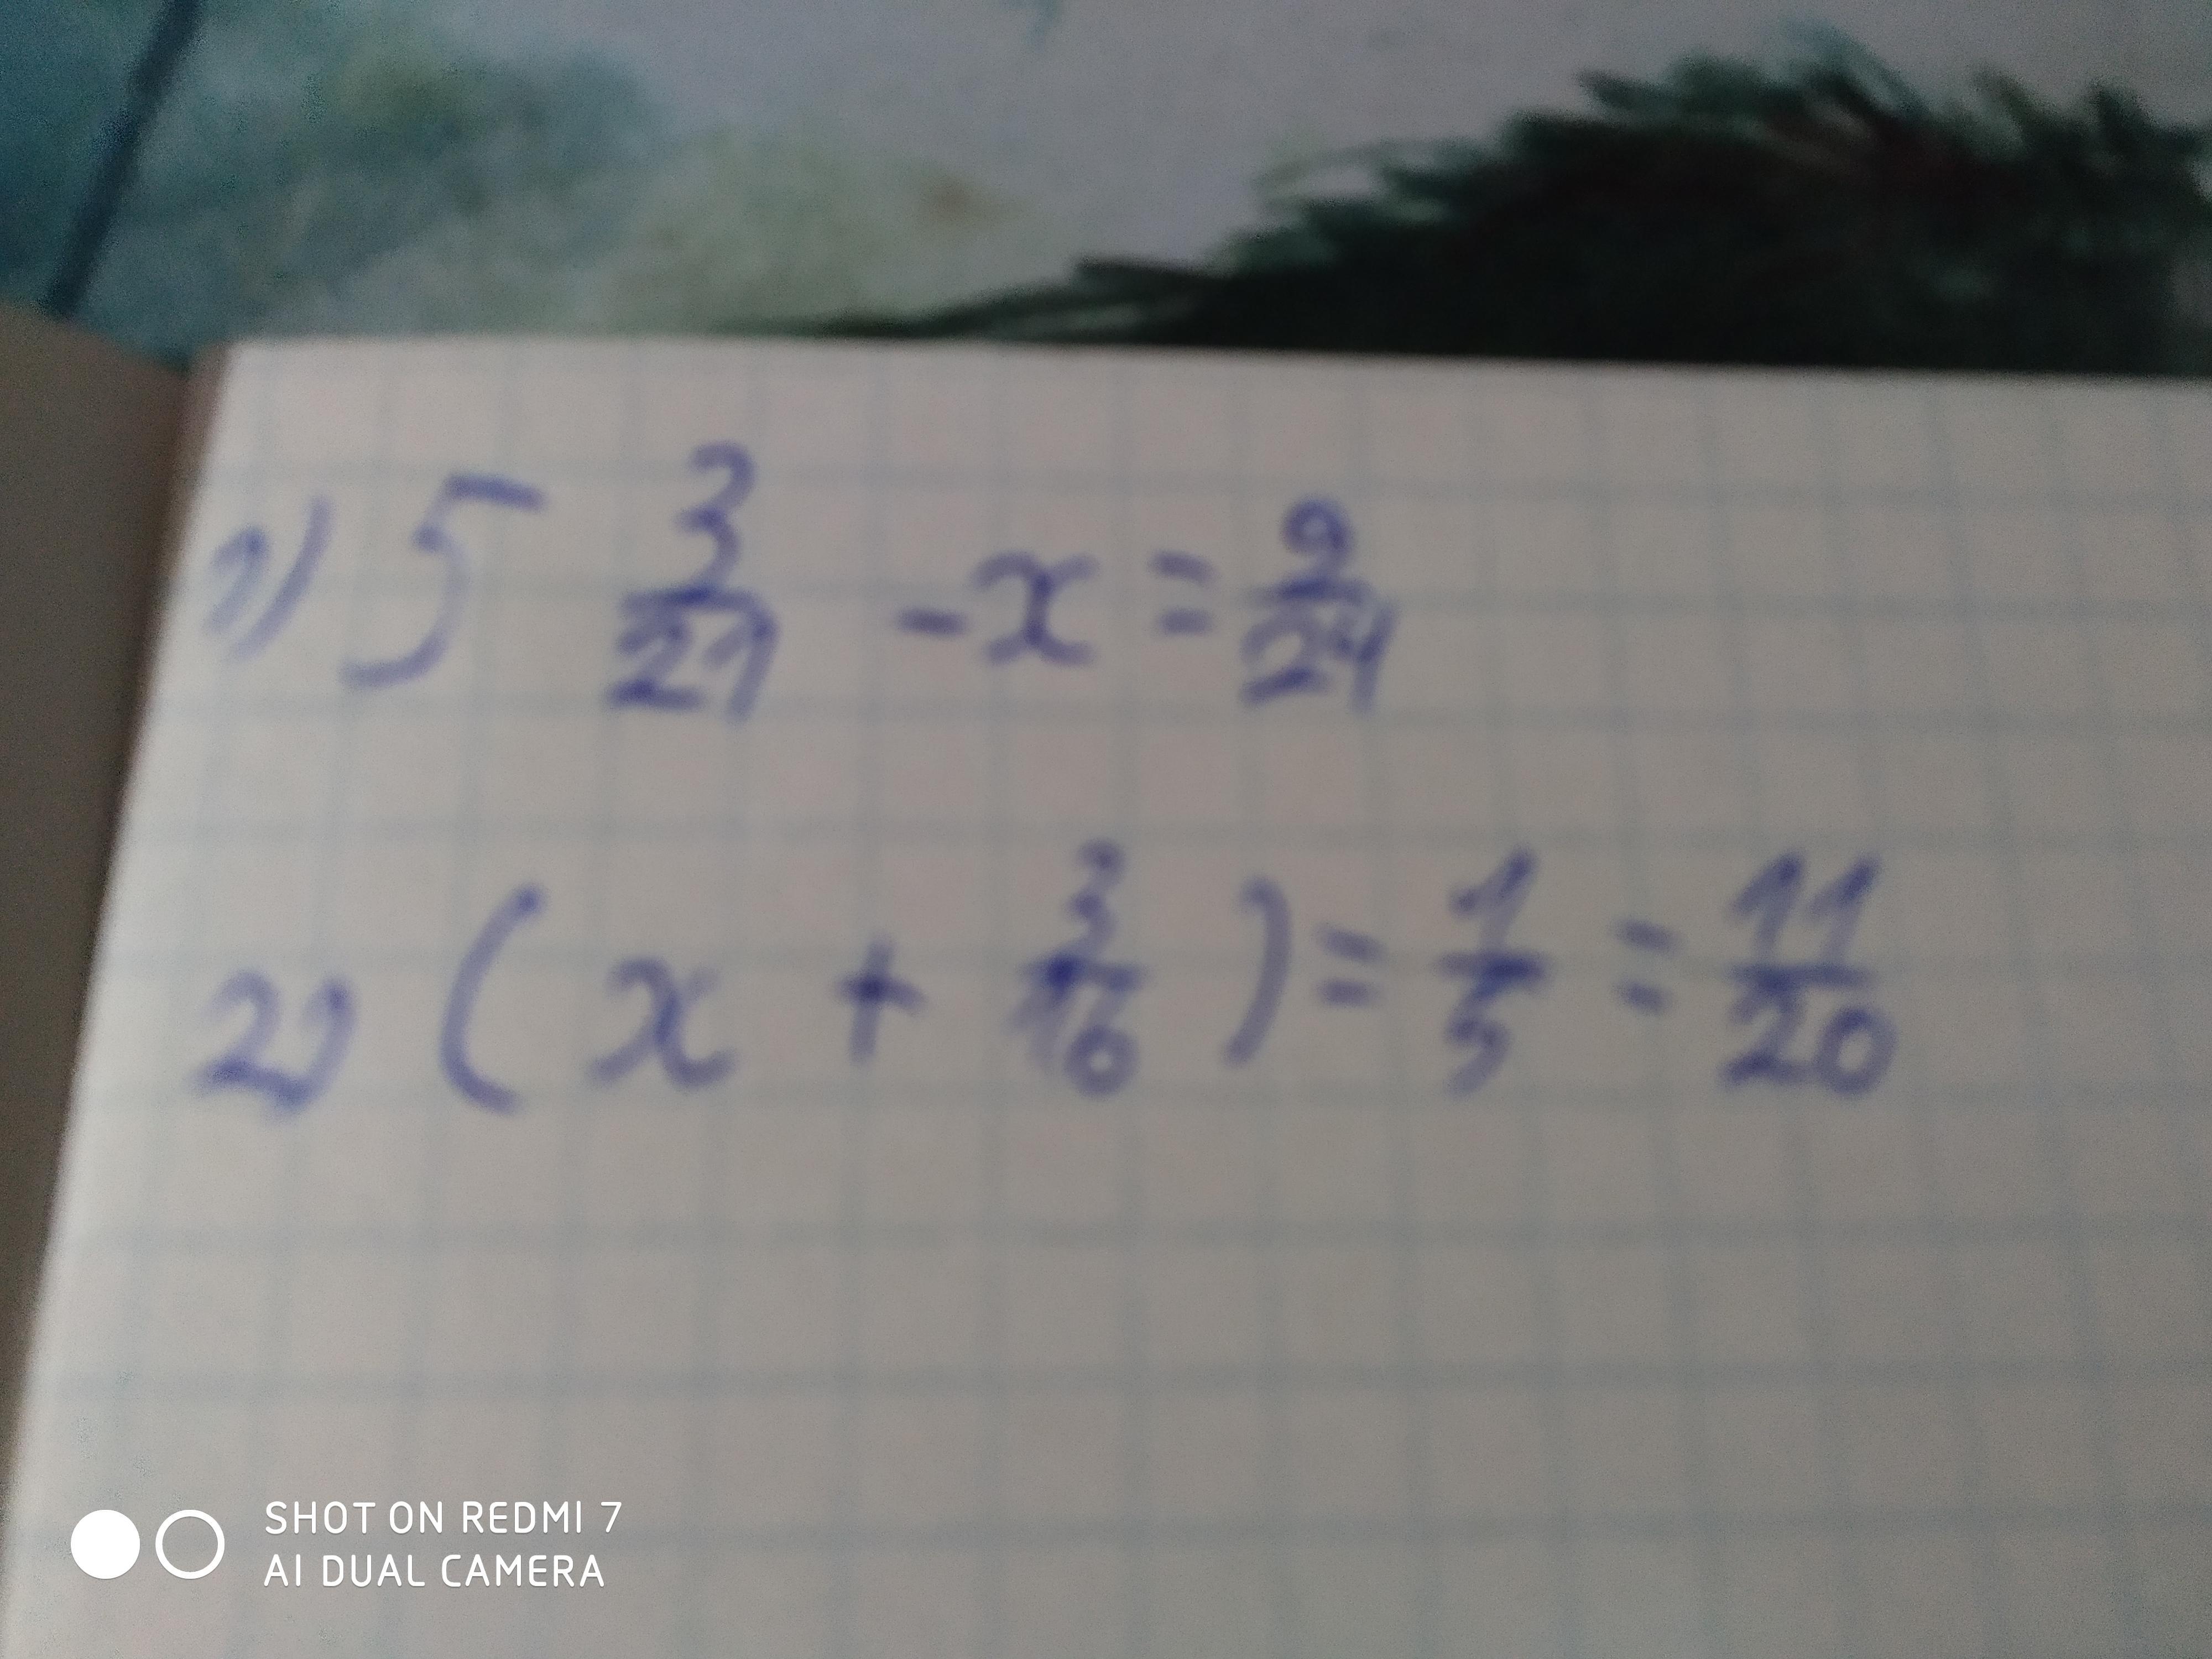 1) 5 3/21 - x = 9/24
2) ( x + 3/16 ) = 1/5 = 11/20
SHOT ON REDMI 7
AI DUAL CAMERA